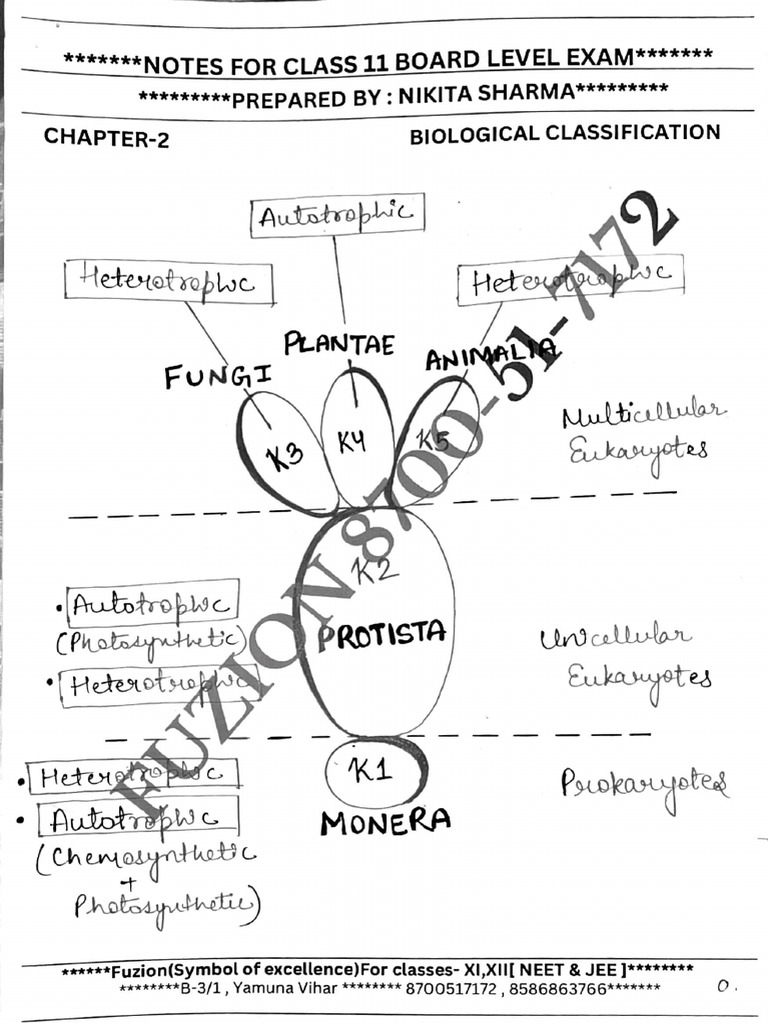 *******NOTES FOR CLASS 11 BOARD LEVEL EXAM*******
*********PREPARED BY : NIKITA SHARMA*********
CHAPTER-2 BIOLOGICAL CLASSIFICATION
Autotrophic
Heterotrophic Heterotrophic
PLANTAE
FUNGI ANIMALIA
K3 K4 K5
Multicellular
Eukaryotes
K2
• Autotrophic
(Photosynthetic)
PROTISTA
Unicellular
Eukaryotes
• Heterotrophic
• Heterotrophic
K1
Prokaryotes
• Autotrophic
MONERA
(Chemosynthetic
+
Photosynthetic)
FUZION 8700-51-7172
******Fuzion(Symbol of excellence)For classes- XI,XII[ NEET & JEE ]********
********B-3/1 , Yamuna Vihar ******** 8700517172 , 8586863766*******
0.